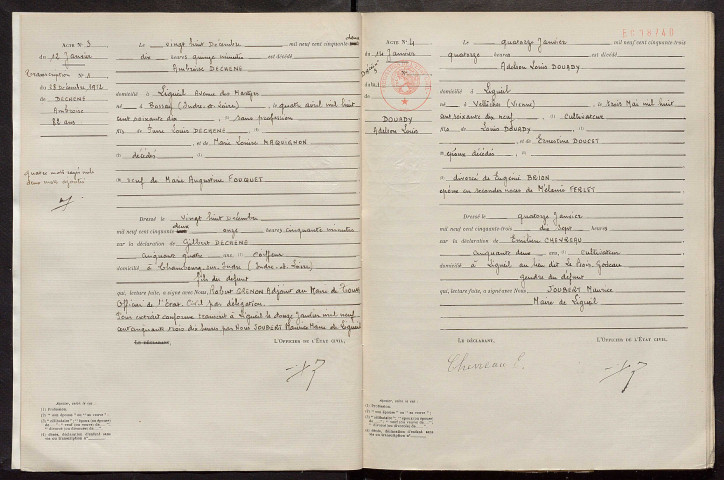 ACTE N° 3
du
12 Janvier
transcription N° 1
du 28 Décembre 1952
de DECHENE
Ambroise
82 ans
quatre mots rayés nuls
deux mots ajoutés
Le vingt huit Décembre mil neuf cent cinquante deux
dix heures quinze minutes est décédé
Ambroise DECHENE
domicilié à Ligueil Avenue des Martyrs
né à Bossay (Indre-et-Loire) le quatre avril mil huit
cent soixante dix sans profession
fils de Louis DECHENE
et de Marie Louise MAQUIGNON
décédés
veuf de Marie Augustine FOUQUET
Dressé le vingt huit Décembre
mil neuf cent cinquante deux onze heures cinquante minutes
sur la déclaration de Gilbert DECHENE
cinquante quatre ans coiffeur
domicilié à Chambourg-sur-Indre (Indre-et-Loire)
fils du défunt
qui, lecture faite, a signé avec Nous, Robert GRENON Adjoint au Maire de Tours
Officier de l'Etat Civil par délégation.
Pour extrait conforme transcrit à Ligueil le douze Janvier mil neuf
cent cinquante trois dix heures par Nous JOUBERT Maurice Maire de Ligueil
LE DÉCLARANT, L'OFFICIER DE L'ÉTAT CIVIL,
(1) Profession.
ACTE N° 4
du
14 Janvier
Décès
DOURDY
Adelson Louis
Le quatorze Janvier mil neuf cent cinquante-trois
quatorze heures est décédé
Adelson Louis DOURDY
domicilié à Ligueil
né à Vellèches (Vienne) le trois Mai mil huit
cent soixante dix neuf cultivateur
fils de Louis DOURDY
et de Ernestine DOUCET
époux décédés
divorcé de Eugénie BRION
époux en secondes noces de Mélanie FERLET
Dressé le quatorze Janvier
mil neuf cent cinquante-trois dix sept heures
sur la déclaration de Emilien CHEVREAU
cinquante deux ans, cultivateur
domicilié à Ligueil au lieu dit Le Bois Godeau
gendre du défunt
qui, lecture faite, a signé avec Nous JOUBERT Maurice
Maire de Ligueil
LE DÉCLARANT, L'OFFICIER DE L'ÉTAT CIVIL,
Chevreau E.
(1) Profession.